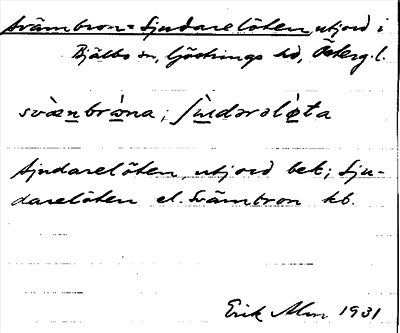 Svämbron = Sjudarelöten, utjord i
Bjälbo sn, Göstrings hd, Österg.l.
svæ̀nbrǿna; ʃɯ̀dərəlø̀ta
Sjudarelöten, utjord bet; Sju-
darelöten el. Svämbron kb.
Erik Alm 1931